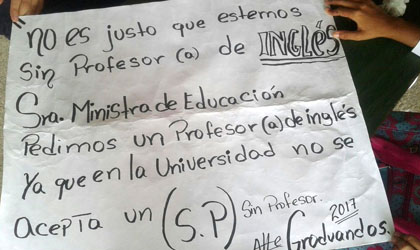 no es justo que estemos
Sin Profesor (a) de INGLÉS
Sra. Ministra de Educación
Pedimos un Profesor (a) de inglés
Ya que en la Universidad no se
acepTa un (S.P) Sin Profesor.
Atte Graduandos. 2017